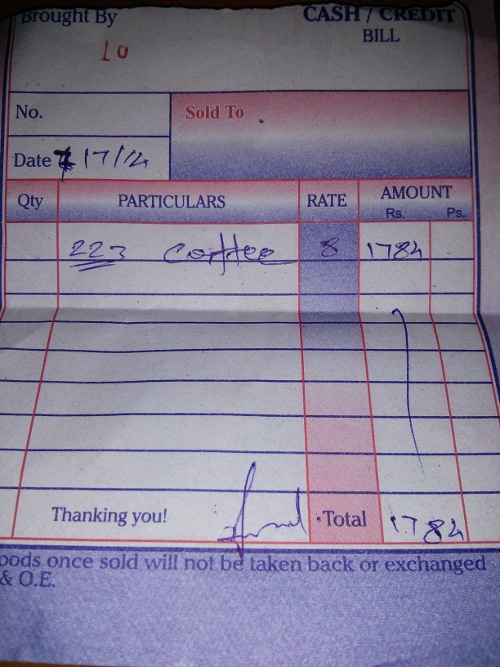 Brought By
CASH / CREDIT
BILL
No.
Sold To
Date 7/7/14
Qty PARTICULARS RATE AMOUNT
Rs. Ps.
223 coffee 8 1784
Thanking you!
Total 1784
oods once sold will not be taken back or exchanged
& O.E.